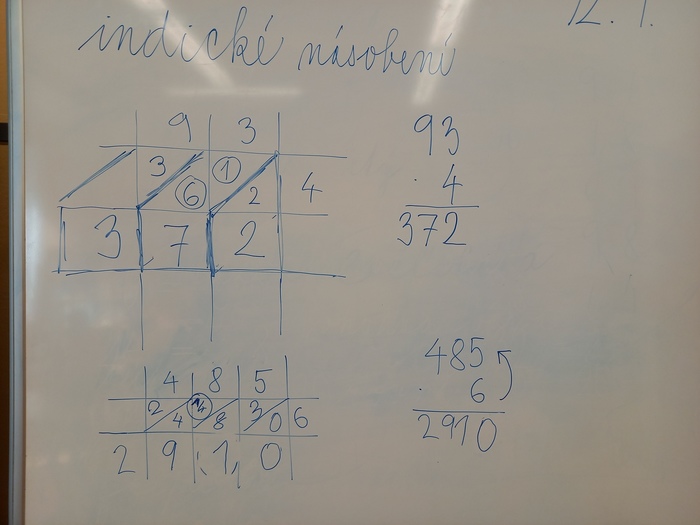 indické násobení
12. 1.
9 3
3 6 1 2 4
3 7 2
93
· 4
372
4 8 5
2 4 4 8 3 0 6
2 9 1 0
485
· 6
2910